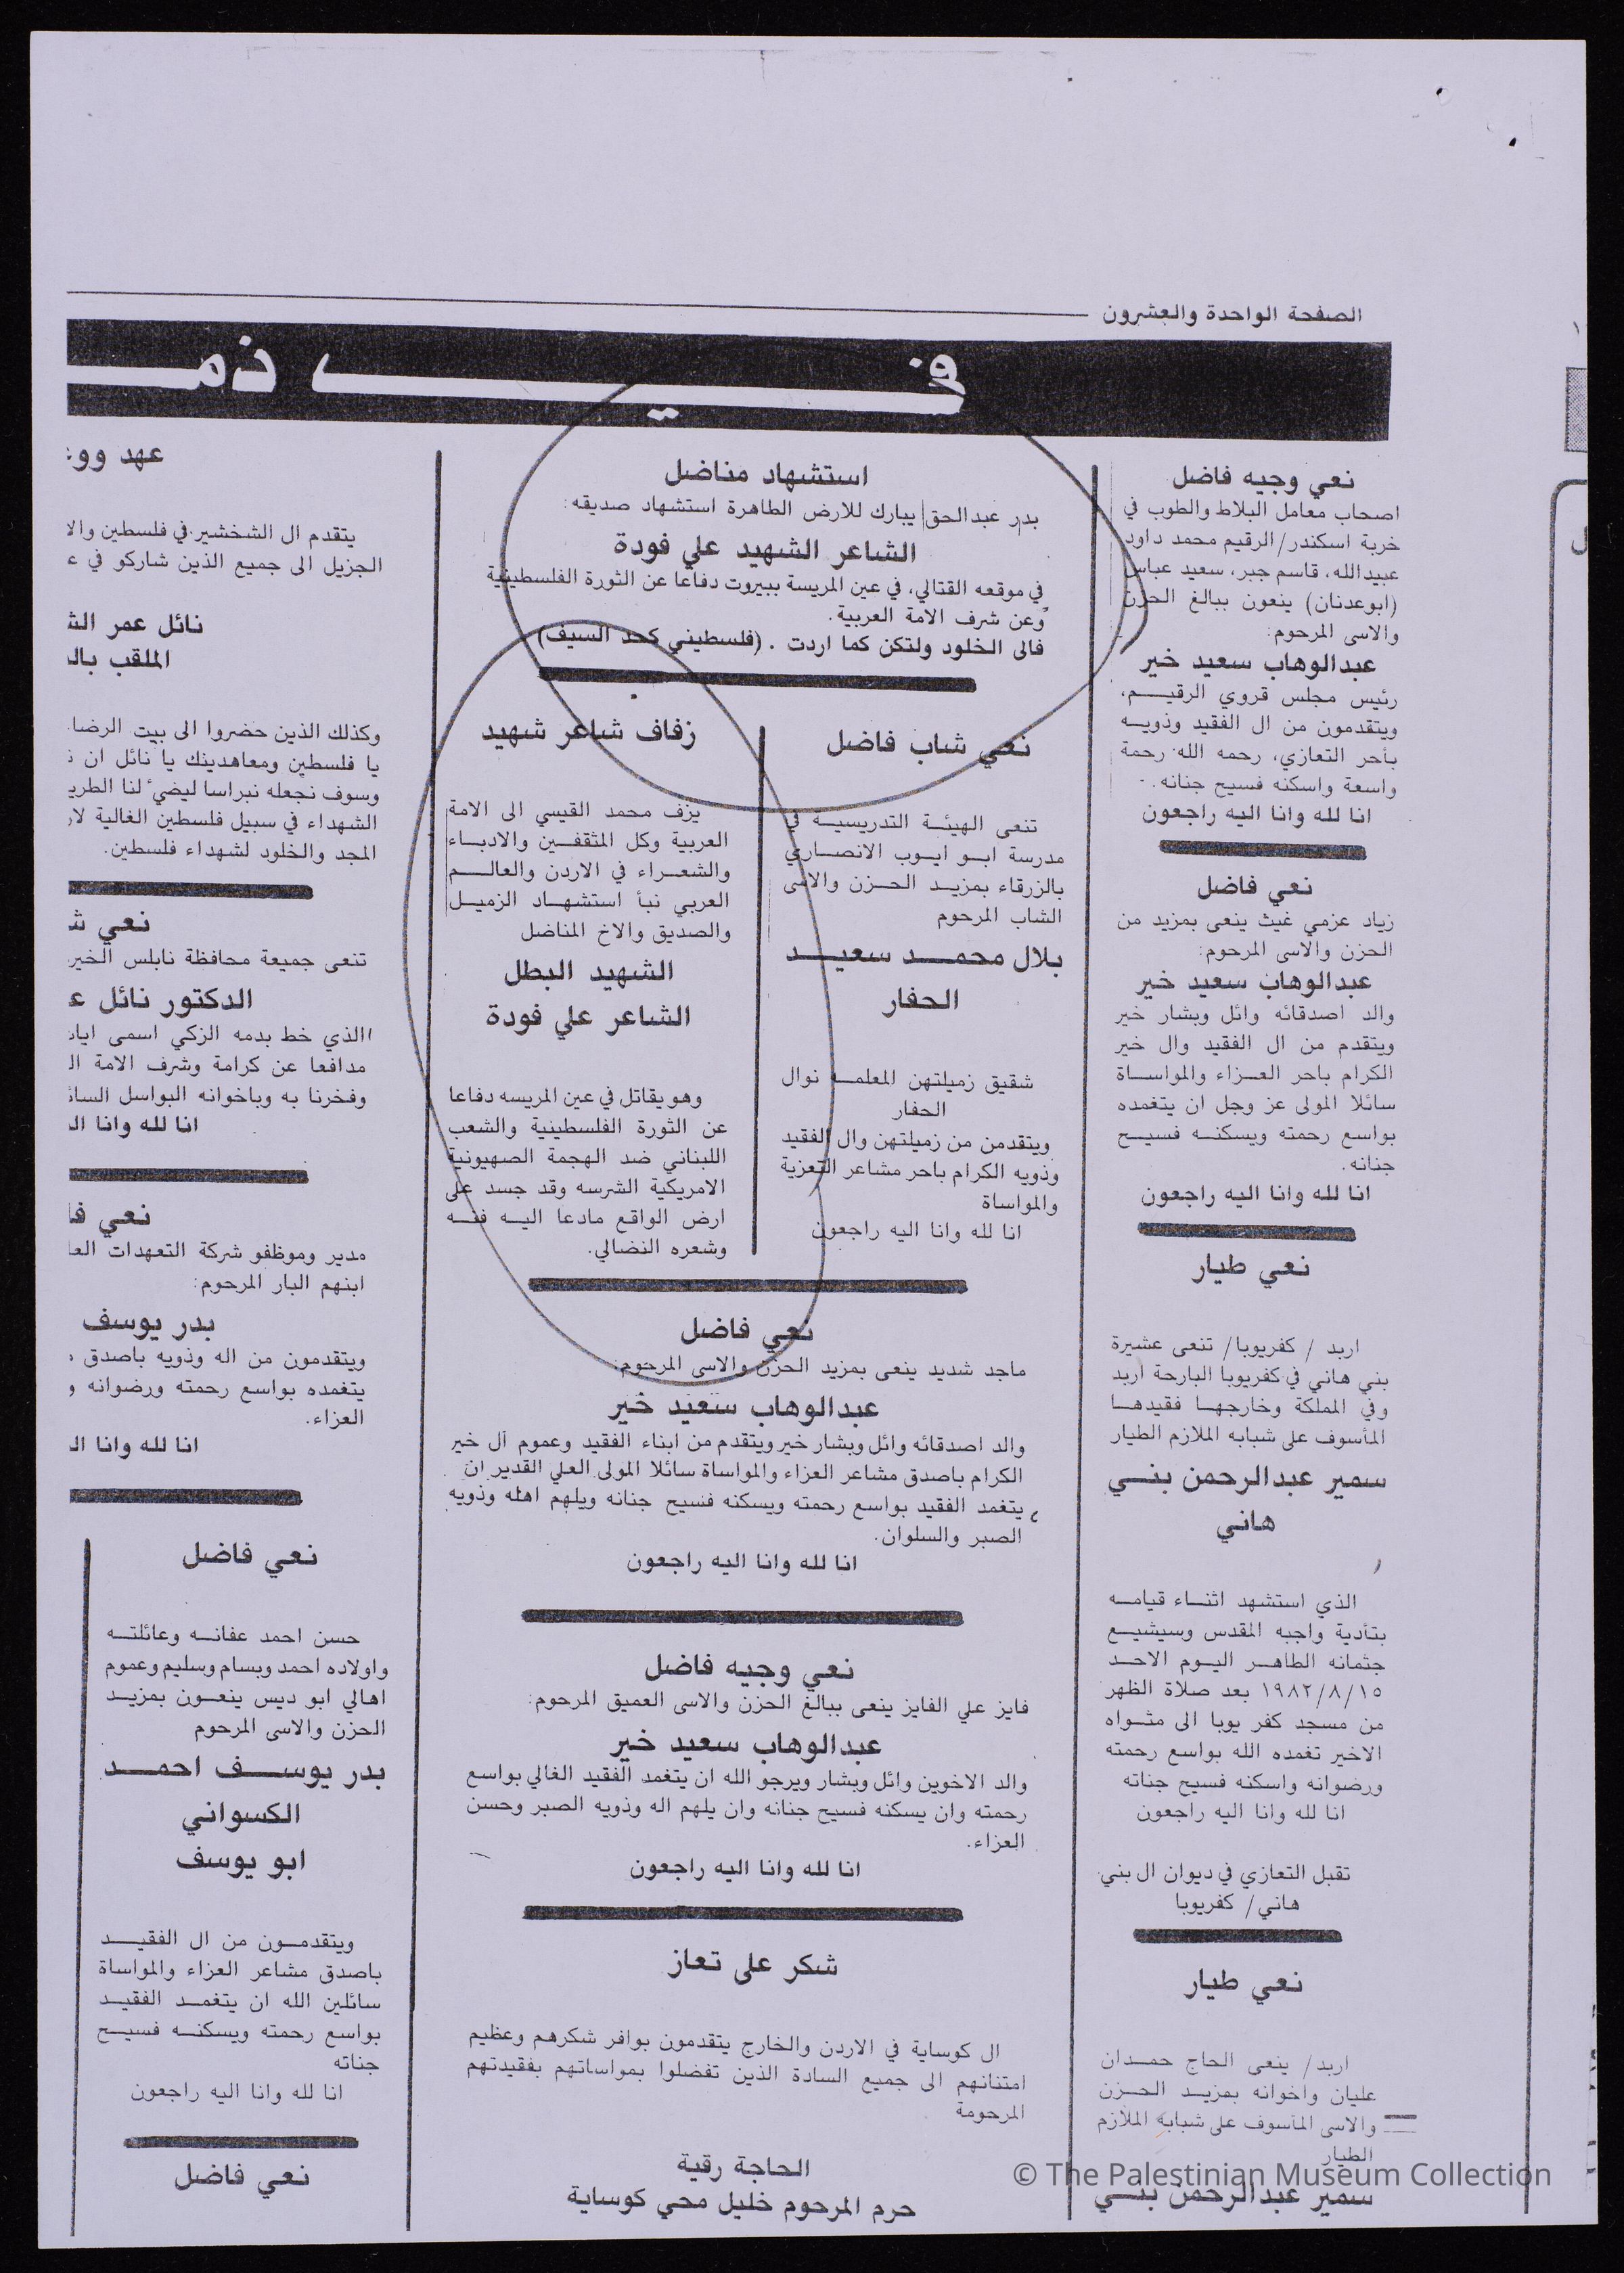 الصفحة الواحدة والعشرون
في ذمـ
نعي وجيه فاضل
اصحاب معامل البلاط والطوب في
خربة اسكندر/الرقيم محمد داود
عبيدالله، قاسم جبر، سعيد عباس
(ابوعدنان) ينعون ببالغ الحزن
والاسى المرحوم:
عبدالوهاب سعيد خير
رئيس مجلس قروي الرقيــم،
ويتقدمون من ال الفقيد وذويه
بأحر التعازي، رحمه الله رحمة
واسعة واسكنه فسيح جنانه.
انا لله وانا اليه راجعون
نعي فاضل
زياد عزمي غيث ينعى بمزيد من
الحزن والاسى المرحوم:
عبدالوهاب سعيد خير
والد اصدقائه وائل وبشار خير
ويتقدم من ال الفقيد وال خير
الكرام باحر العــزاء والمواساة
سائلا المولى عز وجل ان يتغمده
بواسع رحمته ويسكنه فسيح
جنانه.
انا لله وانا اليه راجعون
نعي طيار
اربد / كفريوبا/ تنعى عشيرة
بني هاني في كفريوبا البارحة اربد
وفي المملكة وخارجها فقيدها
المأسوف على شبابه الملازم الطيار
سمير عبدالرحمن بنـي
هاني
الذي استشهد اثناء قيامه
بتأدية واجبه المقدس وسيشيع
جثمانه الطاهر اليوم الاحد
١٩٨٢/٨/١٥ بعد صلاة الظهر
من مسجد كفر يوبا الى مثواه
الاخير تغمده الله بواسع رحمته
ورضوانه واسكنه فسيح جناته
انا لله وانا اليه راجعون
تقبل التعازي في ديوان ال بني
هاني/ كفريوبا
نعي طيار
اربد/ ينعى الحاج حمدان
عليان واخوانه بمزيد الحزن
والاسى المأسوف على شبابه الملازم
الطيار
سمير عبدالرحمن بنـي
استشهاد مناضل
بدر عبدالحق يبارك للارض الطاهرة استشهاد صديقه:
الشاعر الشهيد علي فودة
في موقعه القتالي، في عين المريسة ببيروت دفاعا عن الثورة الفلسطينية
وعن شرف الامة العربية.
فالى الخلود ولتكن كما اردت . (فلسطيني كحد السيف)
نعي شاب فاضل
تنعى الهيئة التدريسية في
مدرسة ابو ايوب الانصاري
بالزرقاء بمزيد الحزن والاسى
الشاب المرحوم
بلال محمــد سعيــد
الحفار
شقيق زميلتهن المعلمة نوال
الحفار
ويتقدمن من زميلتهن وال الفقيد
وذويه الكرام باحر مشاعر التعزية
والمواساة
انا لله وانا اليه راجعون
زفاف شاعر شهيد
يزف محمد القيسي الى الامة
العربية وكل المثقفين والادباء
والشعراء في الاردن والعالم
العربي نبأ استشهاد الزميل
والصديق والاخ المناضل
الشهيد البطل
الشاعر علي فودة
وهو يقاتل في عين المريسه دفاعا
عن الثورة الفلسطينية والشعب
اللبناني ضد الهجمة الصهيونية
الامريكية الشرسه وقد جسد على
ارض الواقع مادعا اليه فنه
وشعره النضالي.
نعي فاضل
ماجد شديد ينعى بمزيد الحزن والاسى المرحوم:
عبدالوهاب سعيد خير
والد اصدقائه وائل وبشار خير ويتقدم من ابناء الفقيد وعموم آل خير
الكرام باصدق مشاعر العزاء والمواساة سائلا المولى العلي القدير ان
يتغمد الفقيد بواسع رحمته ويسكنه فسيح جنانه ويلهم اهله وذويه
الصبر والسلوان.
انا لله وانا اليه راجعون
نعي وجيه فاضل
فايز علي الفايز ينعى ببالغ الحزن والاسى العميق المرحوم:
عبدالوهاب سعيد خير
والد الاخوين وائل وبشار ويرجو الله ان يتغمد الفقيد الغالي بواسع
رحمته وان يسكنه فسيح جنانه وان يلهم اله وذويه الصبر وحسن
العزاء.
انا لله وانا اليه راجعون
شكر على تعاز
ال كوساية في الاردن والخارج يتقدمون بوافر شكرهم وعظيم
امتنانهم الى جميع السادة الذين تفضلوا بمواساتهم بفقيدتهم
المرحومة
الحاجة رقية
حرم المرحوم خليل محي كوساية
عهد ووع
يتقدم ال الشخشير في فلسطين والا
الجزيل الى جميع الذين شاركو في ع
نائل عمر الش
الملقب بالـ
وكذلك الذين حضروا الى بيت الرضا
يا فلسطين ومعاهدينك يا نائل ان ن
وسوف نجعله نبراسا ليضيء لنا الطريـ
الشهداء في سبيل فلسطين الغالية لار
المجد والخلود لشهداء فلسطين.
نعي شـ
تنعى جميعة محافظة نابلس الخير
الدكتور نائل ع
الذي خط بدمه الزكي اسمى ايات
مدافعا عن كرامة وشرف الامة الـ
وفخرنا به وباخوانه البواسل السائـ
انا لله وانا الـ
نعي فا
مدير وموظفو شركة التعهدات العا
ابنهم البار المرحوم:
بدر يوسف
ويتقدمون من اله وذويه باصدق م
يتغمده بواسع رحمته ورضوانه و
العزاء.
انا لله وانا الـ
نعي فاضل
حسن احمد عفانه وعائلته
واولاده احمد وبسام وسليم وعموم
اهالي ابو ديس ينعون بمزيد
الحزن والاسى المرحوم
بدر يوســف احمــد
الكسواني
ابو يوسف
ويتقدمون من ال الفقيد
باصدق مشاعر العزاء والمواساة
سائلين الله ان يتغمد الفقيد
بواسع رحمته ويسكنه فسيح
جناته
انا لله وانا اليه راجعون
نعي فاضل
© The Palestinian Museum Collection